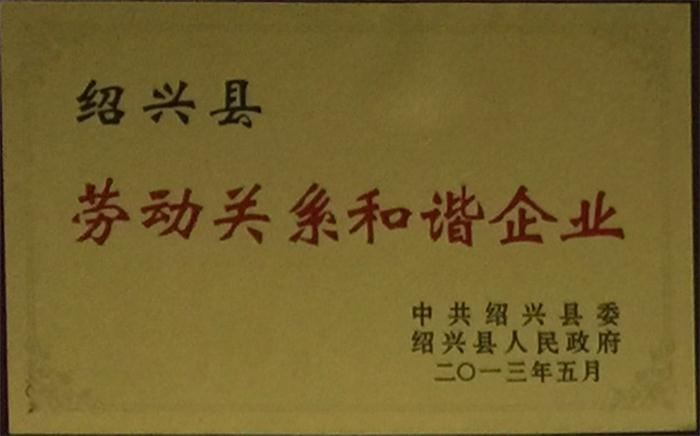 绍兴县
劳动关系和谐企业
中共绍兴县委
绍兴县人民政府
二〇一三年五月